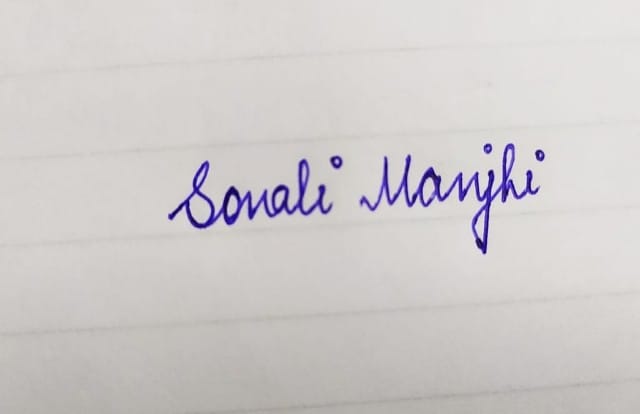 Sonali Manjhi